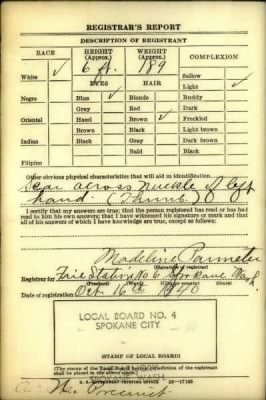 REGISTRAR'S REPORT
DESCRIPTION OF REGISTRANT
RACE HEIGHT (Approx.) WEIGHT (Approx.) COMPLEXION
White ✓ 6 ft. 189 Sallow
EYES HAIR Light ✓
Negro Blue ✓ Blonde Ruddy
Gray Red Dark
Oriental Hazel Brown ✓ Freckled
Brown Black Light brown
Indian Black Gray Dark brown
Bald Black
Filipino
Other obvious physical characteristics that will aid in identification
Scar across Nuckle of left
hand. (Thumb)
I certify that my answers are true; that the person registered has read or has
had read to him his own answers; that I have witnessed his signature or mark and that
all of his answers of which I have knowledge are true, except as follows:
Madeline Parmeter
(Signature of registrar)
Registrar for Fire Station No 6 Spokane Wash.
Date of registration Oct. 16th 1940
LOCAL BOARD NO. 4
SPOKANE CITY
(STAMP OF LOCAL BOARD)
(The stamp of the Local Board having jurisdiction of the registrant
shall be placed in the above space.)
SPOKANE, WASH.
U. S. GOVERNMENT PRINTING OFFICE 16—17105
Precinct